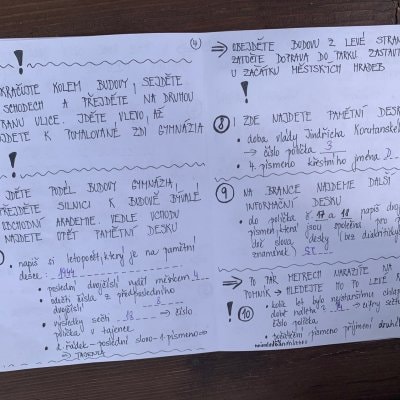 (4)
KRAČUJTE KOLEM BUDOVY, SEJDĚTE
SCHODECH A PŘEJDĚTE NA DRUHOU
RANU ULICE. JDĚTE VLEVO, AŽ
JDETE K POMALOVANÉ ZDI GYMNÁZIA
!
JDĚTE PODÉL BUDOVY GYMNÁZIA,
PŘEJDĚTE SILNICI K BUDOVĚ BÝVALÉ
OBCHODNÍ AKADEMIE. VEDLE VCHODU
NAJDETE OPĚT PAMĚTNÍ DESKU
napiš si letopočet, který je na pamětní
desce: 1944
poslední dvojčíslí vydělměsícem 4
odečti čísla z předposledního
dvojčíslí 8
výsledky sečti → číslo
políčka v tajence
1. řádek - poslední slovo - 1. písmeno
→ TAJENKA
⇒ OBEJDĚTE BUDOVU Z LEVÉ STRAN
ZATOČTE DOPRAVA DO PARKU. ZASTAVT
U ZAČÁTKU MĚSTSKÝCH HRADEB
8 ZDE NAJDETE PAMĚTNÍ DESK
doba vlády Jindřicha Korutanské
→ číslo políčka 3
4. písmeno křestního jména D
9 NA BRANCE NAJDEME DALŠÍ
INFORMAČNÍ DESKU
do políčka č. 17 a 18 napiš dvoj
písmen, která jsou společná pro
dvě slova desky (bez diakritick
znamének)
⇒ PO PÁR METRECH NARAZÍTE NA
POMNÍK → HLEDEJTE HO PO LEVÉ
! 10 kolik let bylo nejstaršímu chlap
době náletu → cifry sečti
číslo políčka
počáteční písmeno příjmení druhéh